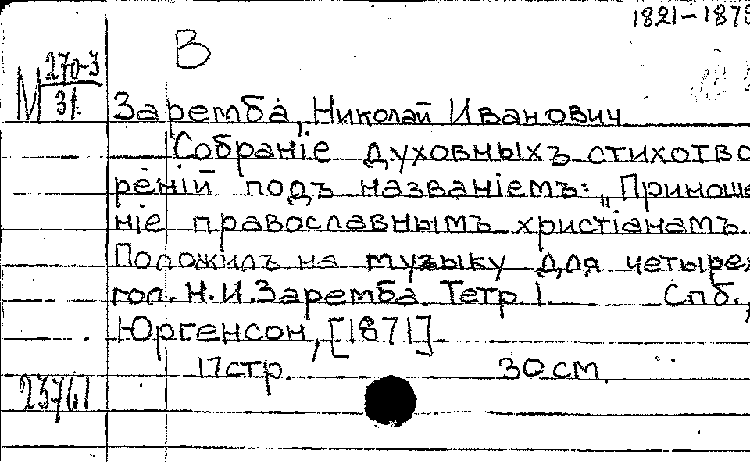 1821-1879
В
М 270-3
31
Заремба, Николай Иванович
Собраніе духовныхъ стихотво
реній подъ названіемъ: „Приноше
ніе православнымъ христіанамъ.
Положилъ на музыку для четырех
гол. Н. И. Заремба. Тетр 1 Спб.,
Юргенсон, [1871]
17 стр. 30 см.
23761